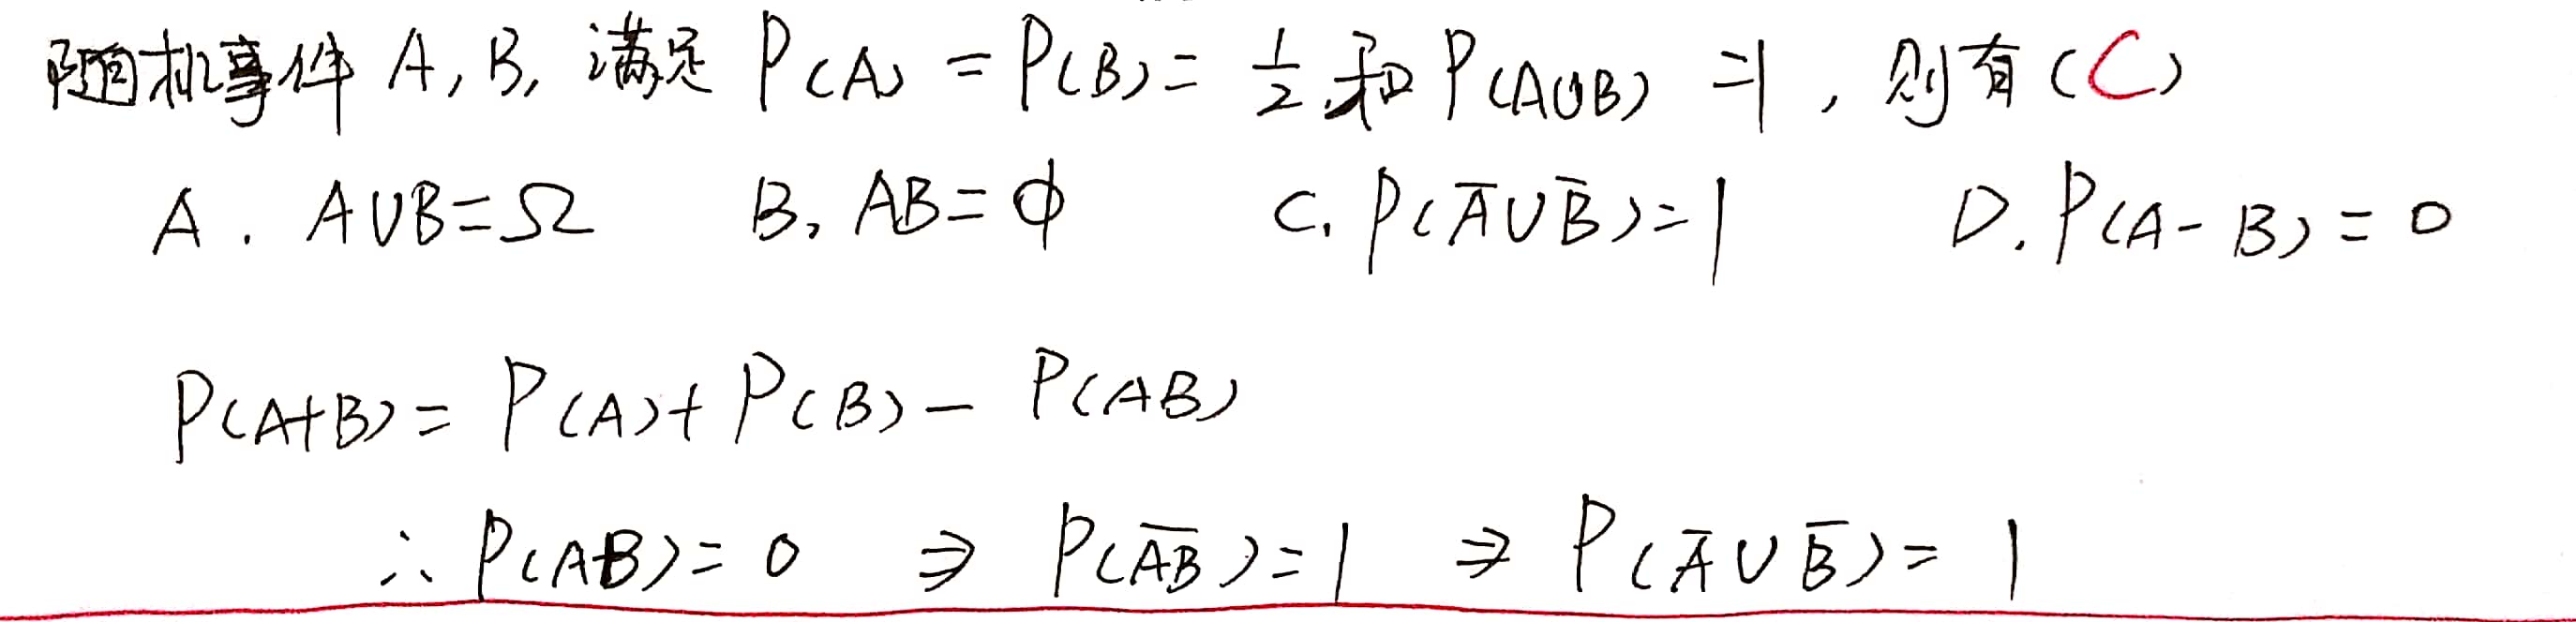 随机事件 A, B, 满足 P(A) = P(B) = 1/2 和 P(A∪B) = 1, 则有 (C)
A. A∪B=Ω B. AB=ϕ C. P(A̅∪B̅)=1 D. P(A-B)=0
P(A+B) = P(A)+P(B)-P(AB)
∴ P(AB)=0 ⇒ P(A̅B̅)=1 ⇒ P(A̅∪B̅)=1